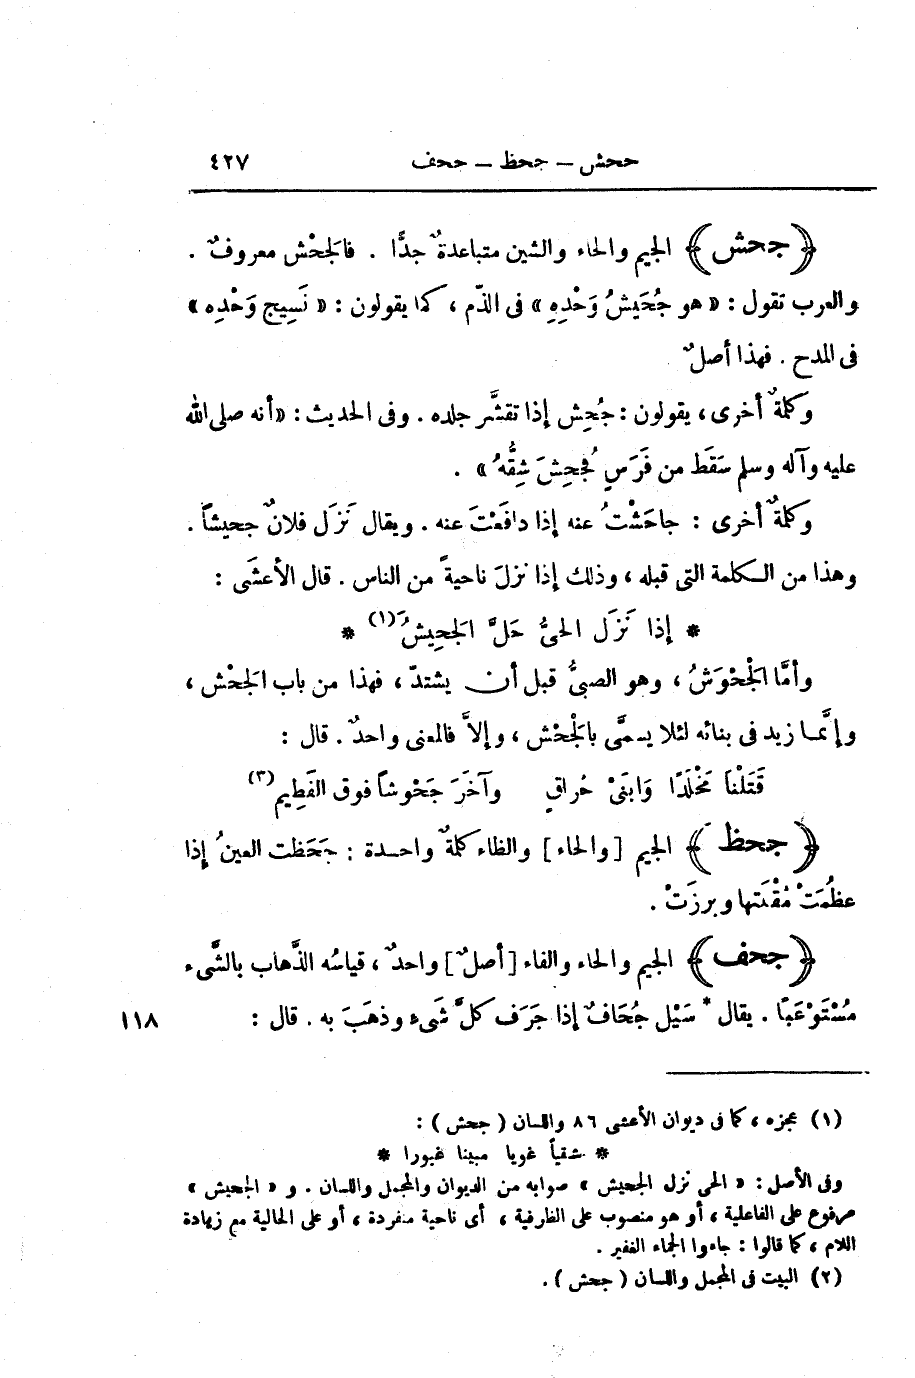 جحش – جحظ – جحف ٤٢٧
﴿ جحش ﴾ الجيم والحاء والشين متباعدةٌ جدًّا . فالجَحْش معروفٌ .
والعرب تقول : « هو جُحَيشُ وَحْدِهِ » فى الذّم ، كما يقولون : « نَسِيج وَحْدِه »
فى المدح . فهذا أصلٌ
وكلمةٌ أخرى ، يقولون : جُحِش إذا تقشَّر جلده . وفى الحديث : « أنه صلى الله
عليه وآله وسلم سَقَط من فَرَسٍ فجُحِشَ شِقُّهُ » .
وكلمةٌ أخرى : جاحَشْتُ عنه إذا دافَعْتَ عنه . ويقال نَزَل فلانٌ جحيشاً .
وهذا من الكلمة التى قبله ، وذلك إذا نزلَ ناحيةً من الناس . قال الأعشَى :
* إذا نَزَل الحىُّ حَلَّ الجَحِيشُ (١) *
وأمَّا الجَحْوَشُ ، وهو الصبىُّ قبل أن يشتدّ ، فهذا من باب الجَحْش ،
وإنَّما زيد فى بنائه لئلا يسمَّى بالجَحْش ، وإلاَّ فالمعنى واحدٌ . قال :
قَتَلْنا مَخْلَدًا وَابنَىْ حُراقٍ وآخَرَ جَحْوشاً فوق الفَطِيمِ (٣)
﴿ جحظ ﴾ الجيم [ والحاء ] والظاء كلمةٌ واحدة : جَحَظت العينُ إذا
عظُمَتْ مُقْلَتها وبرزَتْ .
﴿ جحف ﴾ الجيم والحاء والفاء [ أصلٌ ] واحدٌ ، قياسُه الذَّهاب بالشَّىء
مُسْتَوْعَبًا . يقال * سَيْل جُحَافٌ إذا جَرَف كلَّ شَىءٍ وذهَبَ به . قال : ١١٨
(١) عجزه ، كما فى ديوان الأعشى ٨٦ واللسان ( جحش ) :
* شقياً غويا مبينا غيورا *
وفى الأصل : « الحى نزل الجحيش » صوابه من الديوان والمجمل واللسان . و « الجحيش »
مرفوع على الفاعلية ، أو هو منصوب على الظرفية ، أى ناحية منفردة ، أو على الحالية مع زيادة
اللام ، كما قالوا : جاءوا الجماء الغفير .
(٢) البيت فى المجمل واللسان ( جحش ) .